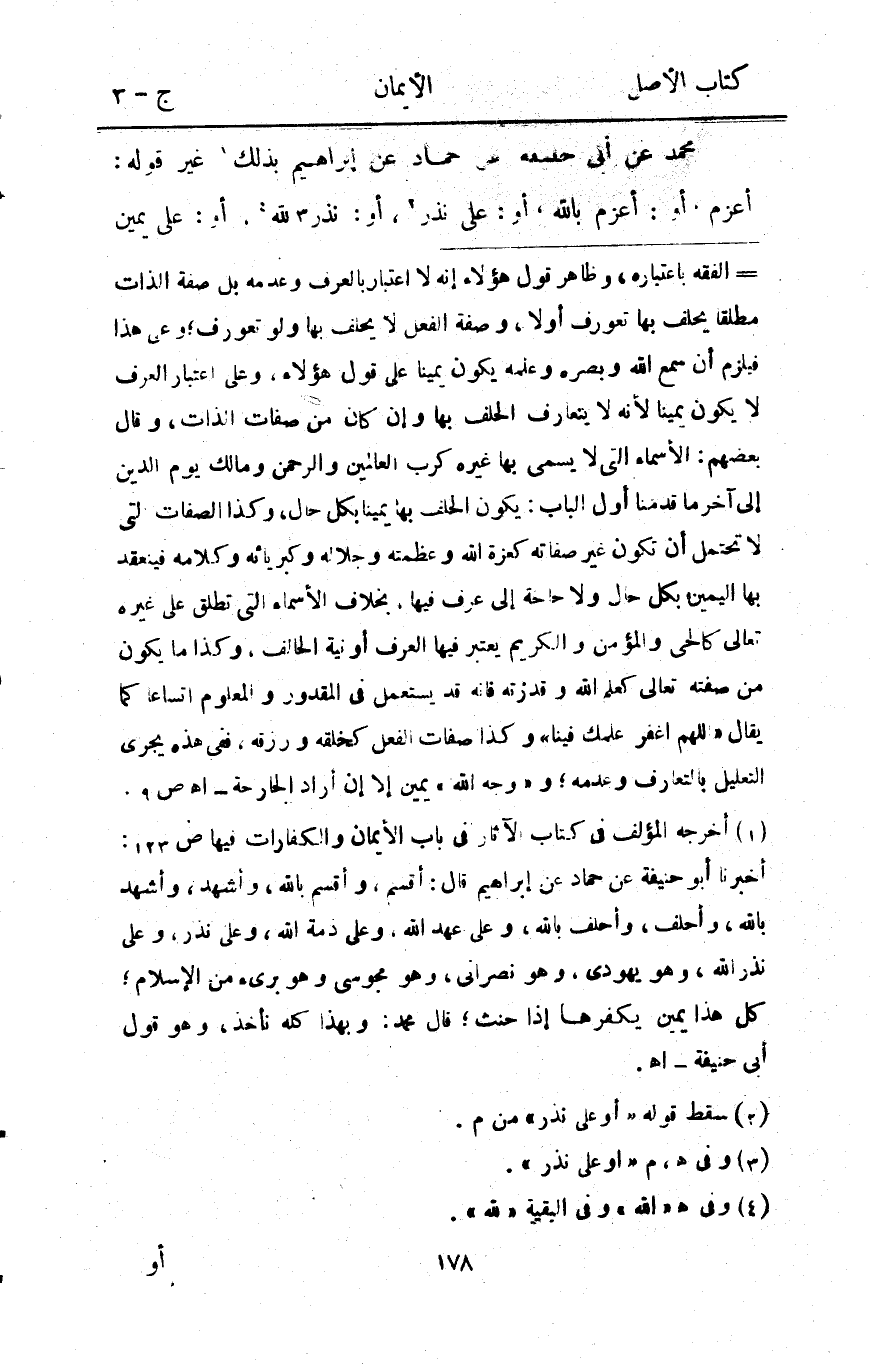 كتاب الأصل الأيمان ج - ٣
محمد عن أبى حنيفة عن حماد عن إبراهيم بذلك١ غير قوله:
أعزم، أو: أعزم بالله، أو: على نذر٢، أو: نذر٣ لله٤. أو: على يمين
= الفقه باعتباره، و ظاهر قول هؤلاء إنه لا اعتبار بالعرف و عدمه بل صفة الذات
مطلقا يحلف بها تعورف أولا، و صفة الفعل لا يحلف بها و لو تعورف؛ و على هذا
فيلزم أن سمع الله و بصره و علمه يكون يمينا على قول هؤلاء، و على اعتبار العرف
لا يكون يمينا لأنه لا يتعارف الحلف بها و إن كان من صفات الذات، و قال
بعضهم: الأسماء التى لا يسمى بها غيره كرب العالمين و الرحمن و مالك يوم الدين
إلى آخر ما قدمنا أول الباب: يكون الحلف بها يمينا بكل حال، و كذا الصفات التى
لا تحتمل أن تكون غير صفاته كعزة الله و عظمته و جلاله و كبريائه و كلامه فينعقد
بها اليمين بكل حال و لا حاجة إلى عرف فيها. بخلاف الأسماء التى تطلق على غيره
تعالى كالحى و المؤمن و الكريم يعتبر فيها العرف أو نية الحالف. و كذا ما يكون
من صفته تعالى كعلم الله و قدرته فانه قد يستعمل فى المقدور و المعلوم اتساعا كما
يقال «اللهم اغفر علمك فينا» و كذا صفات الفعل كخلقه و رزقه، ففى هذه يجرى
التعليل بالتعارف و عدمه؛ و « وجه الله » يمين إلا إن أراد الجارحة ـ اه ص ٩ .
(١) أخرجه المؤلف فى كتاب الآثار فى باب الأيمان و الكفارات فيها ص ١٢٣:
أخبرنا أبو حنيفة عن حماد عن إبراهيم قال: أقسم، و أقسم بالله، و أشهد، و أشهد
بالله، و أحلف، و أحلف بالله، و على عهد الله، و على ذمة الله، و على نذر، و على
نذر الله، و هو يهودى، و هو نصرانى، و هو مجوسى و هو برىء من الإسلام؛
كل هذا يمين يكفرها إذا حنث؛ قال محمد: و بهذا كله نأخذ، و هو قول
أبى حنيفة ـ اه .
(٢) سقط قوله « أو على نذر» من م .
(٣) و فى ه، م « او على نذر » .
(٤) و فى ه « الله » و فى البقية « لله » .
١٧٨ أو